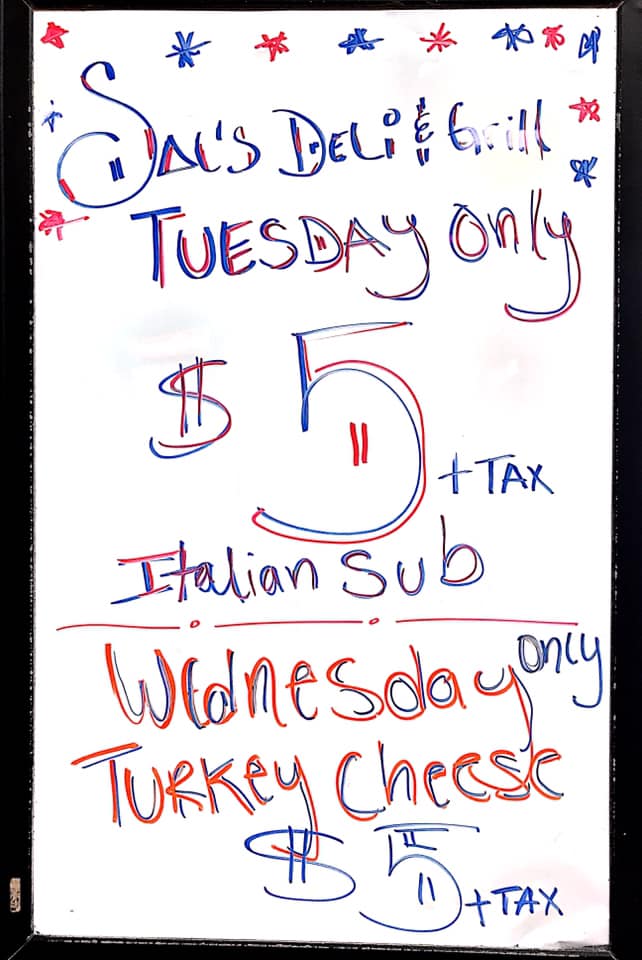 Sal's Deli & Grill
TUESDAY Only
$5 + TAX
Italian Sub
Wednesday only
Turkey Cheese
$5 + TAX